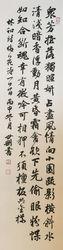 眾芳搖落獨暄妍占盡風情向小園疏影橫斜水
清淺暗香浮動月黃昏霜禽欲下先偷眼粉蝶
如知合斷魂幸有微吟可相狎不須檀板共金樽
林和靖 冬月 書